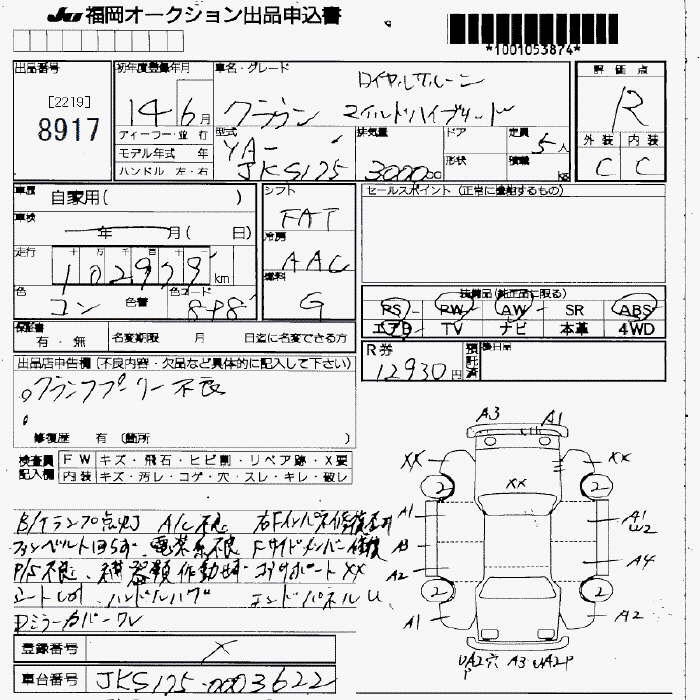 JU 福岡オークション出品申込書
*1001053874*
出品番号
[2219]
8917
初年度登録年月
14 6月
ディーラー・並 行
モデル年式 年
ハンドル 左・右
車名・グレード
ロイヤルサルーン
クラウン マイルドハイブリッド
型式
YA-
JKS175
排気量
3000cc
ドア
形状
定員
5人
積載
kg
評価点
R
外装 内装
C C
車歴
自家用( )
車検
年 月( 日)
走行
十 万 千 百 十
102979 km
色
コン
色替
色コード
8P8
シフト
FAT
冷房
AAC
燃料
G
セールスポイント (正常に機能するもの)
装備品(純正品に限る)
PS PW AW SR ABS
エアB TV ナビ 本革 4WD
保証書
有・無
名変期限 月 日迄に名変できる方
R券
12930円
預託済
後日品
出品店申告欄(不良内容・欠品など具体的に記入して下さい)
クランクプーリー不良
修復歴 有 (箇所 )
検査員記入欄
FW キズ・飛石・ヒビ割・リペア跡・X要
内装 キズ・汚レ・コゲ・穴・スレ・キレ・破レ
B/Tランプ点灯 A/C不良
ファンベルト回らず、電装系不良 Fサイドメンバー修復
P/S不良、補器類作動せず コアサポートXX
シートヒョウ ハンドルハゲ エンドパネルU
Dミラーカバーワレ
A3 A1
XX XX
XX
2 2
A1 A1
U2
A3
A2 A4
2 2
A1 A2
UA2穴 A3 UA2P
P
登録番号
X
車台番号
JKS175-0003622